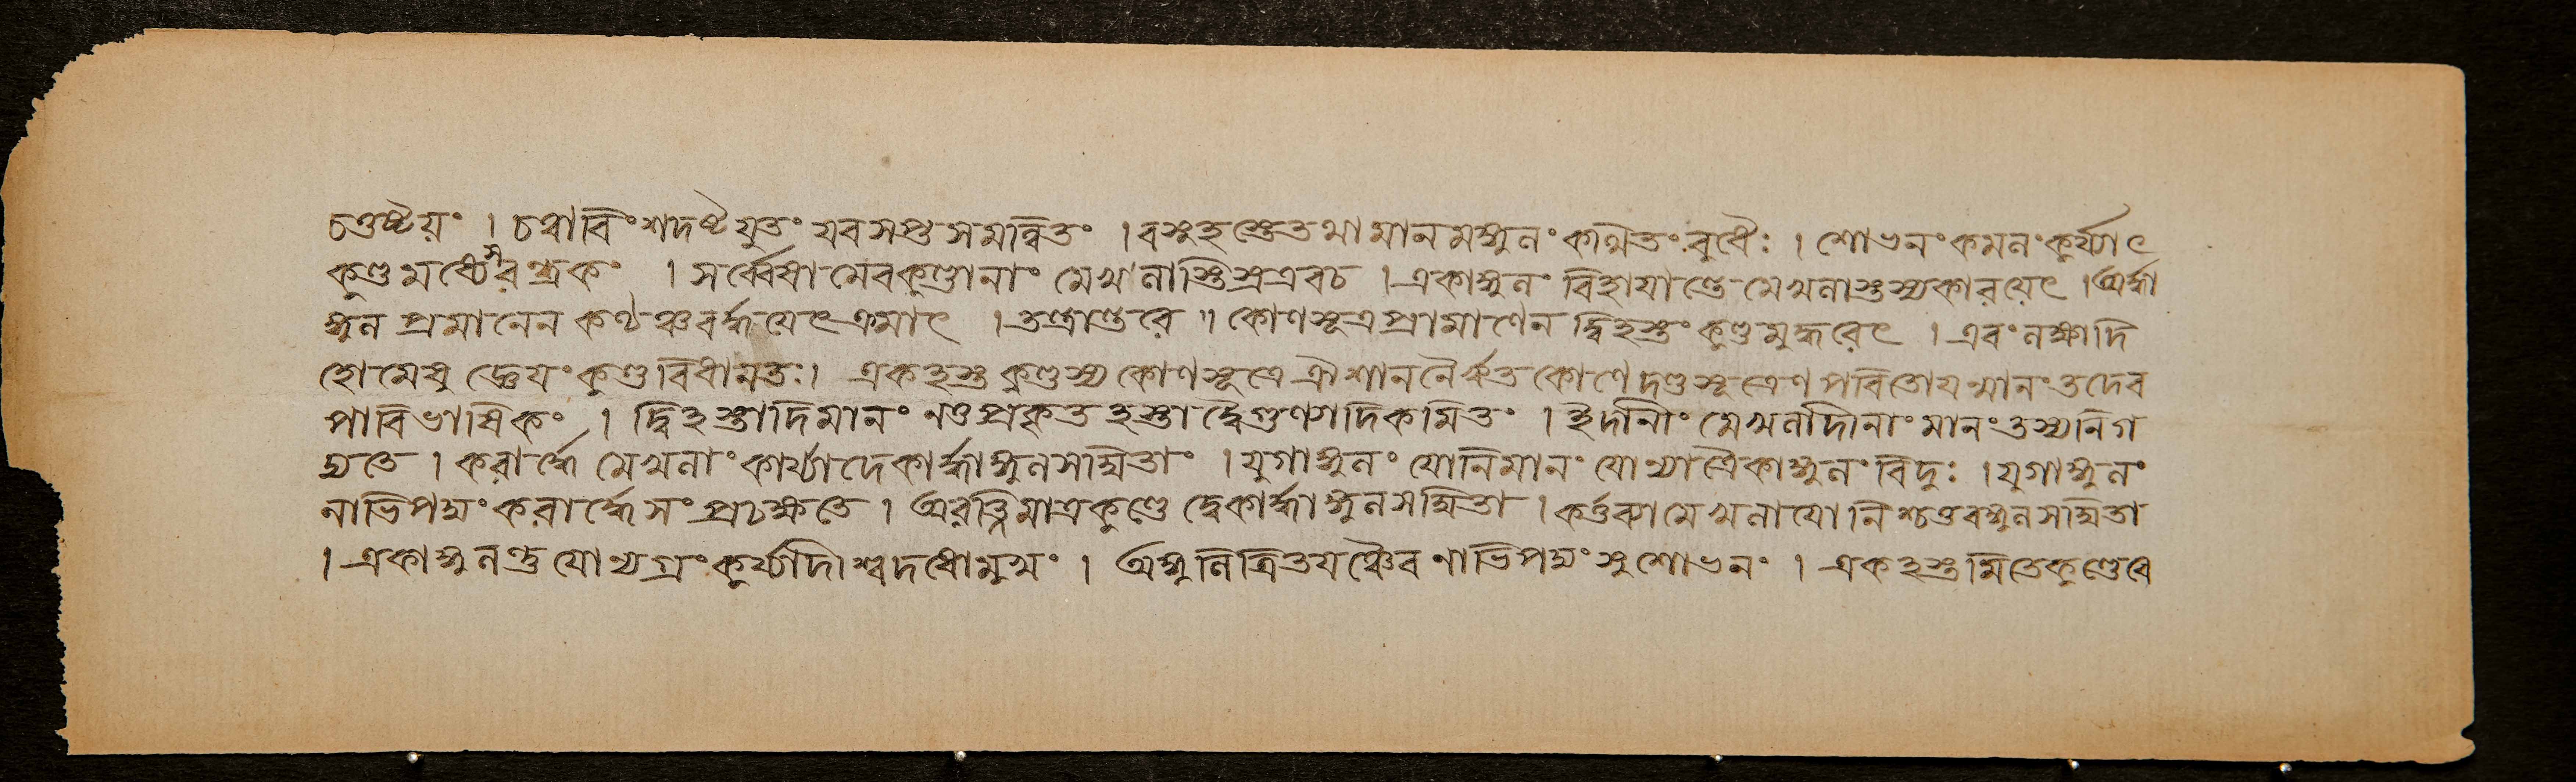 চতুষ্টয়ং । চত্বাবিংশদষ্টযুতং যবসপ্তসমন্বিতং । বসুহস্তেতথামানমঙ্গুলং কল্পিতং বুধৈঃ । শোভনং কমলং কুর্য্যাৎ
কুণ্ডমধ্যে সর্বত্রকং । সর্ব্বেষামেবকুণ্ডানাং মেখলাস্তিস্রএবচ । একাঙ্গুলং বিহাযান্তে মেখলাস্তস্যকারয়েৎ । অর্দ্ধা
ঙ্গুল প্রমানেন কণ্ঠঞ্চবর্দ্ধযেৎক্রমাৎ । তন্ত্রান্তরে ॥ কোণসূত্রপ্রামাণেন দ্বিহস্তং কুণ্ডমুদ্ধরেৎ । এবং লক্ষাদি
হোমেষু জ্ঞেয়ং কুণ্ডবিধানতঃ । একহস্ত কুণ্ডস্য কোণসূত্রে ঐশাননৈর্ঋত কোণে দণ্ডসূত্রেণ পবিতোযন্মানং তদেব
পাবিভাষিকং । দ্বিহস্তাদিমানং নতুপ্রকৃত হস্তা দ্বৈগুণ্যাদিকমিতং । ইদানীং মেখলাদীনাং মানং তস্যনিগ
দ্যতে । করার্দ্ধে মেখলাং কার্য্যাদেকার্দ্ধাঙ্গুলসম্মিতাং । যুগাঙ্গুলং যোনিমানং যোন্যাগ্রৈকাঙ্গুলং বিদুঃ । যুগাঙ্গুলং
নাভিপদ্মং করার্দ্ধেসংপ্রচক্ষতে । অরত্নিমাত্রকুণ্ডে দ্বেকার্দ্ধাঙ্গুলসম্মিতা । কর্ত্তব্যামেখলাযোনিশ্চতুবঙ্গুলসম্মিতা
। একাঙ্গুলন্তু যোন্যগ্রং কুর্য্যাদীশ্বদধোমুখং । অঙ্গুলিত্রিতযঞ্চৈব নাভিপদ্মং সুশোভনং । একহস্তমিতেকুণ্ডেবে